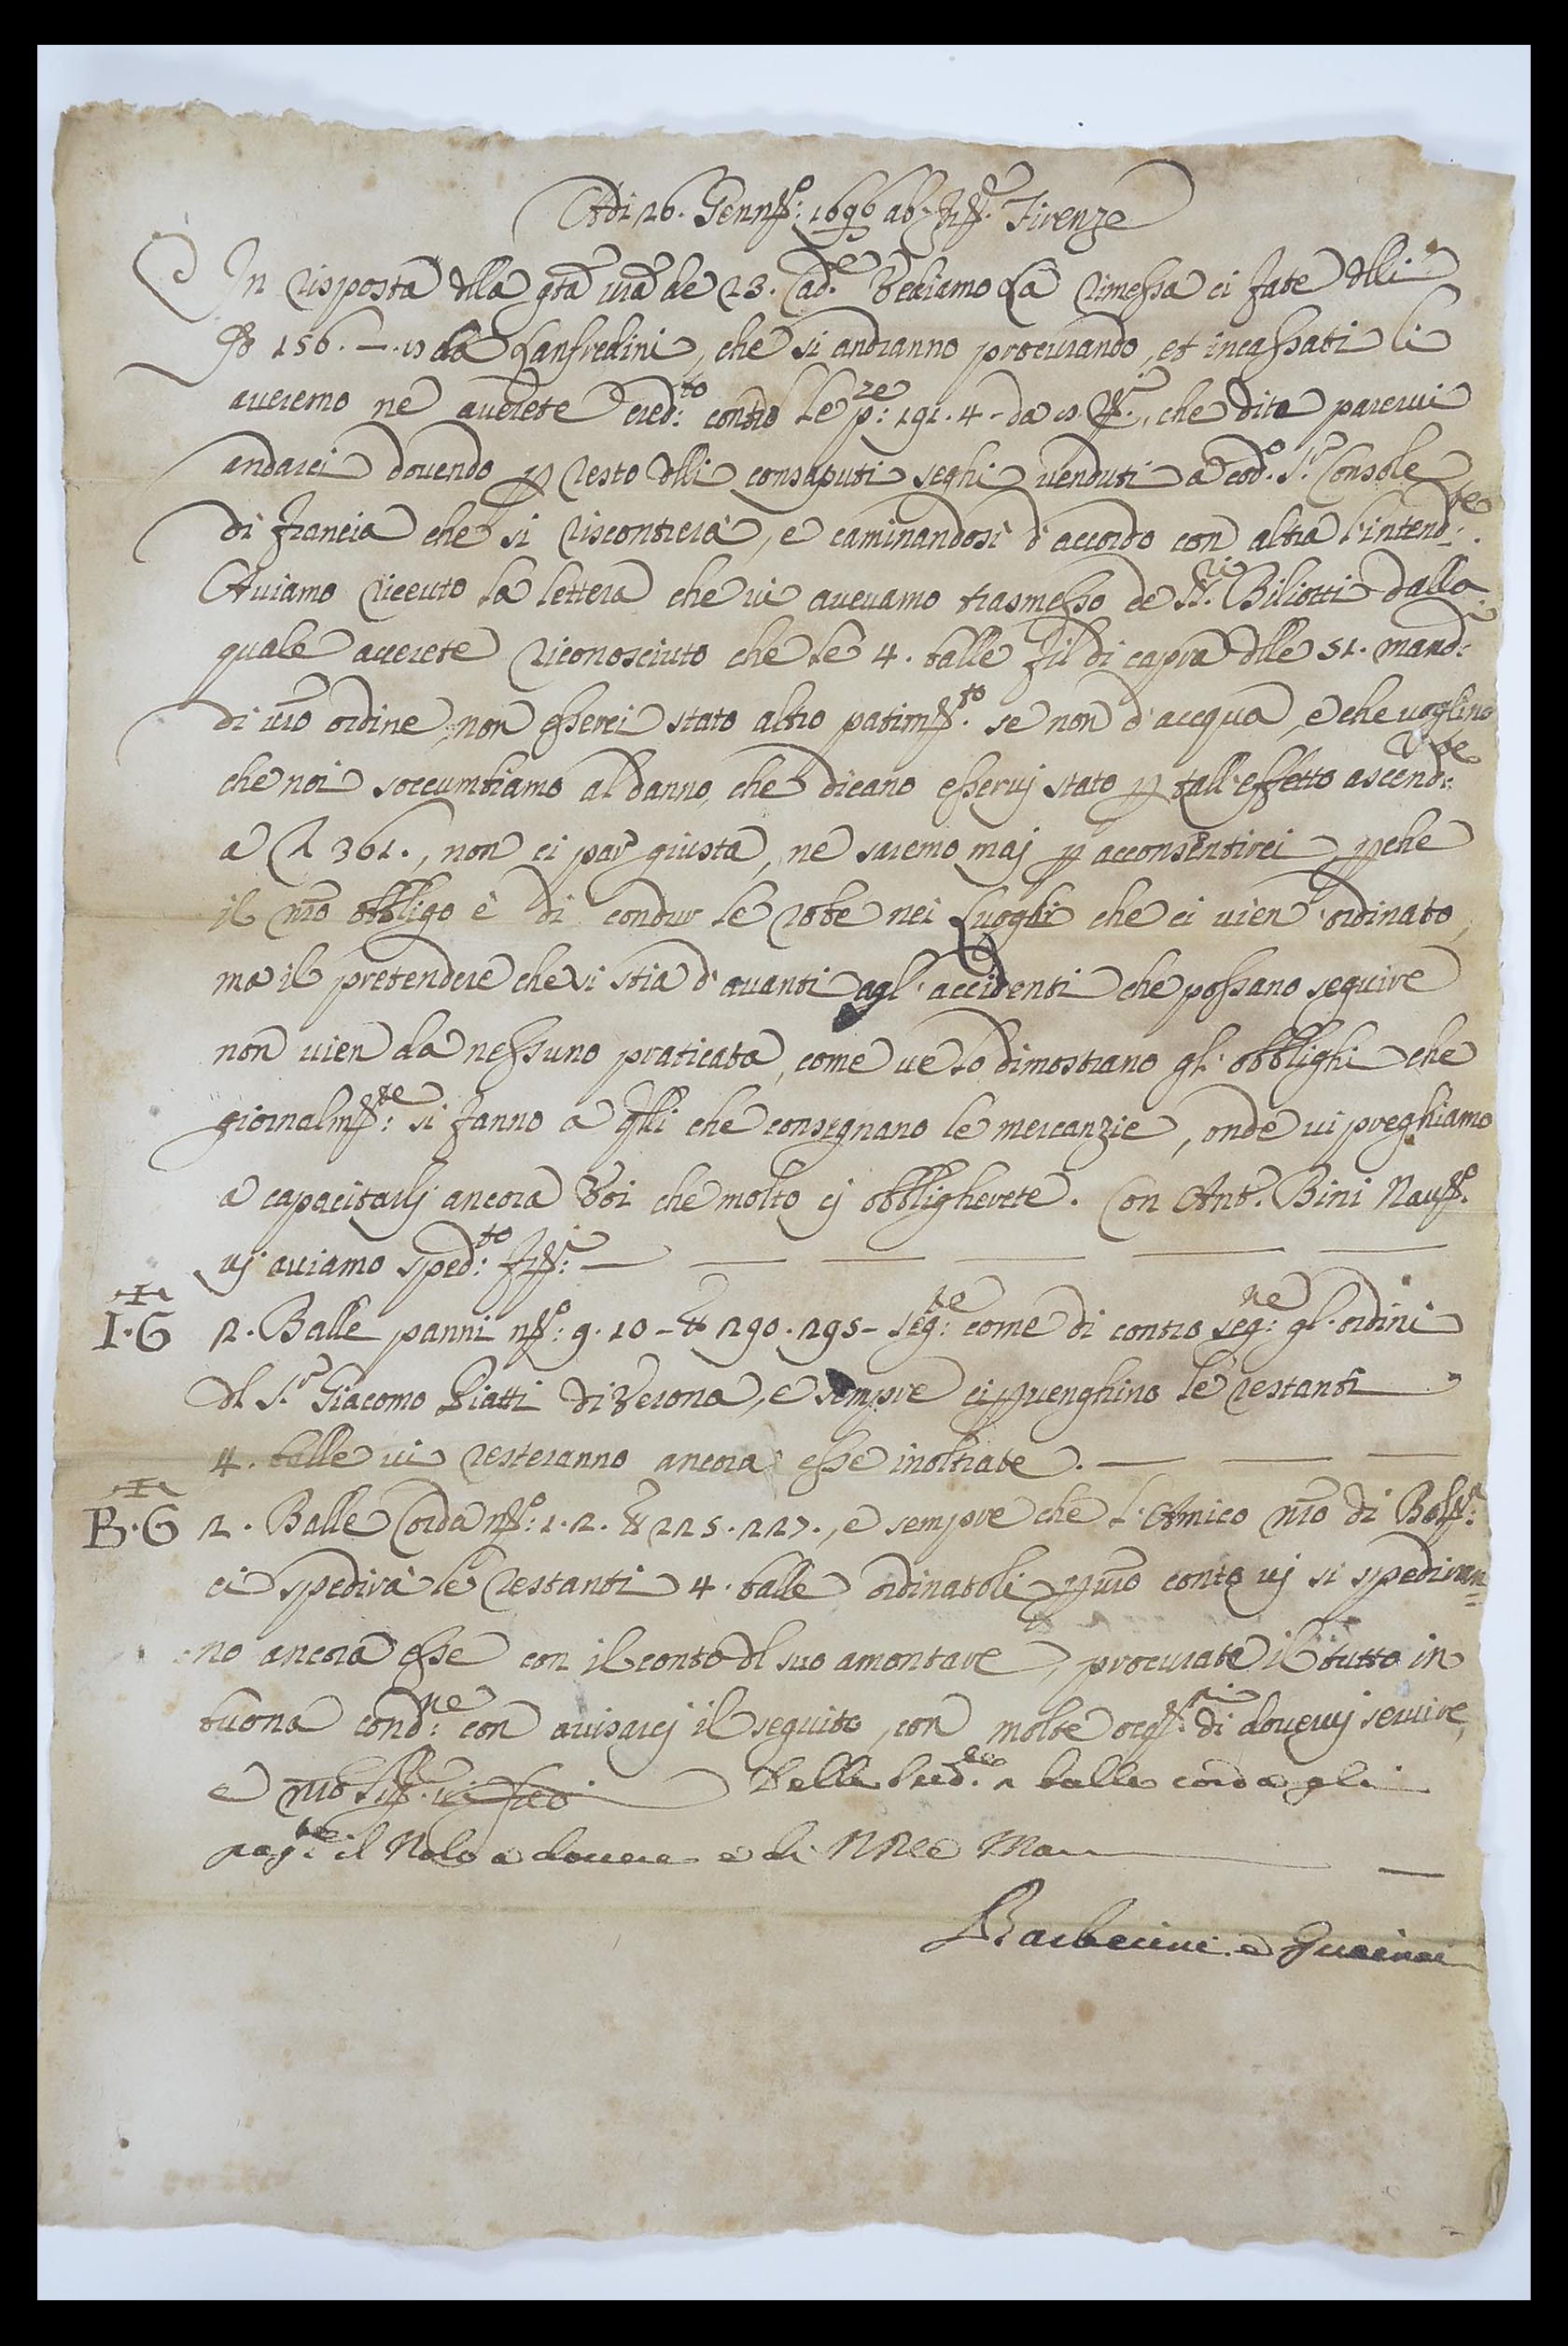 Adi 26. Genn.º: 1696 ab Inc.ne Firenze
In risposta dlla grã urã de 23. Cad.e Vediamo La rimessa ci fate dlli
156. –.10 da Lanfredini, che si andranno procurando, et incassati li
averemo ne averete cred:to contro le p:re 191. 4 - da che dite parervi
andarci dovendo p resto dlli consaputi seghi venduti a cod.º S.r Console
di francia che si riscontrerà, e caminandosi d'accordo con altra l'intend:te.
Aviamo riceuto la lettera che vi avevamo trasmesso de SS.ri Biliotti dalla
quale averete riconosciuto che le 4. balle fil di capra dlle 51. mand:e
di uro ordine, non esserci stato altro patim.to se non d'acqua, e che voglino
che noi soccumbiamo al danno, che dicano esservj stato p tall'effetto ascend:te
a 361., non ci par giusta, ne saremo maj p acconsentirci pche
il nro obbligo è di condur le robe nei Luoghi che ci vien ordinato,
ma il pretendere che si stia d'avanti agl'accidenti che possano seguire
non vien da nessuno praticata, come ve lo dimostrano gl'obblighi che
giornalm:te si fanno a qlli che consegnano le mercanzie, onde vi preghiamo
a capacitarlj ancora Voi che molto cj obbligherete. Con Ant.º Bini Nav.º
vj aviamo sped:to
I·G 2. Balle panni n.º: 9. 10 - & 290. 295 - seg:te come di contro seg:ne gl'ordini
dl S.r Giacomo Piatti di Verona, e sempre ci pvenghino le restanti
4. balle vi resteranno ancora esse inoltrate.
B·G 2. Balle Corda n.º: 1. 2. & 225. 227., e sempre che l'Amico nro di Bol.a:
ci spedirà le restanti 4. balle ordinatoli p uro conto vj si spediran=
no ancora esse con il conto dl suo amontare, procurate il tutto in
buona cond:ne con avisarcj il seguito, con molte di dovervj servire,
e nro Sig.re vi feli
Delle sud.e 2 balle corda gli
pag:te il Nolo a dovere e di
Barberini e Guerini